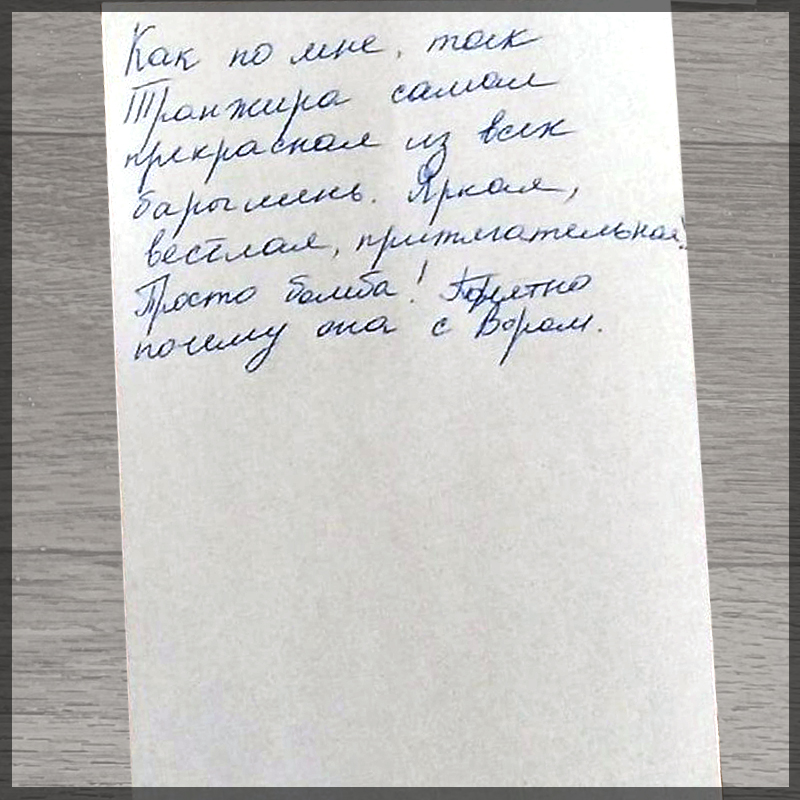 Как по мне, так
Транжира самая
прекрасная из всех
барышень. Яркая,
веселая, притягательная.
Просто бомба! Понятно
почему она с Вором.